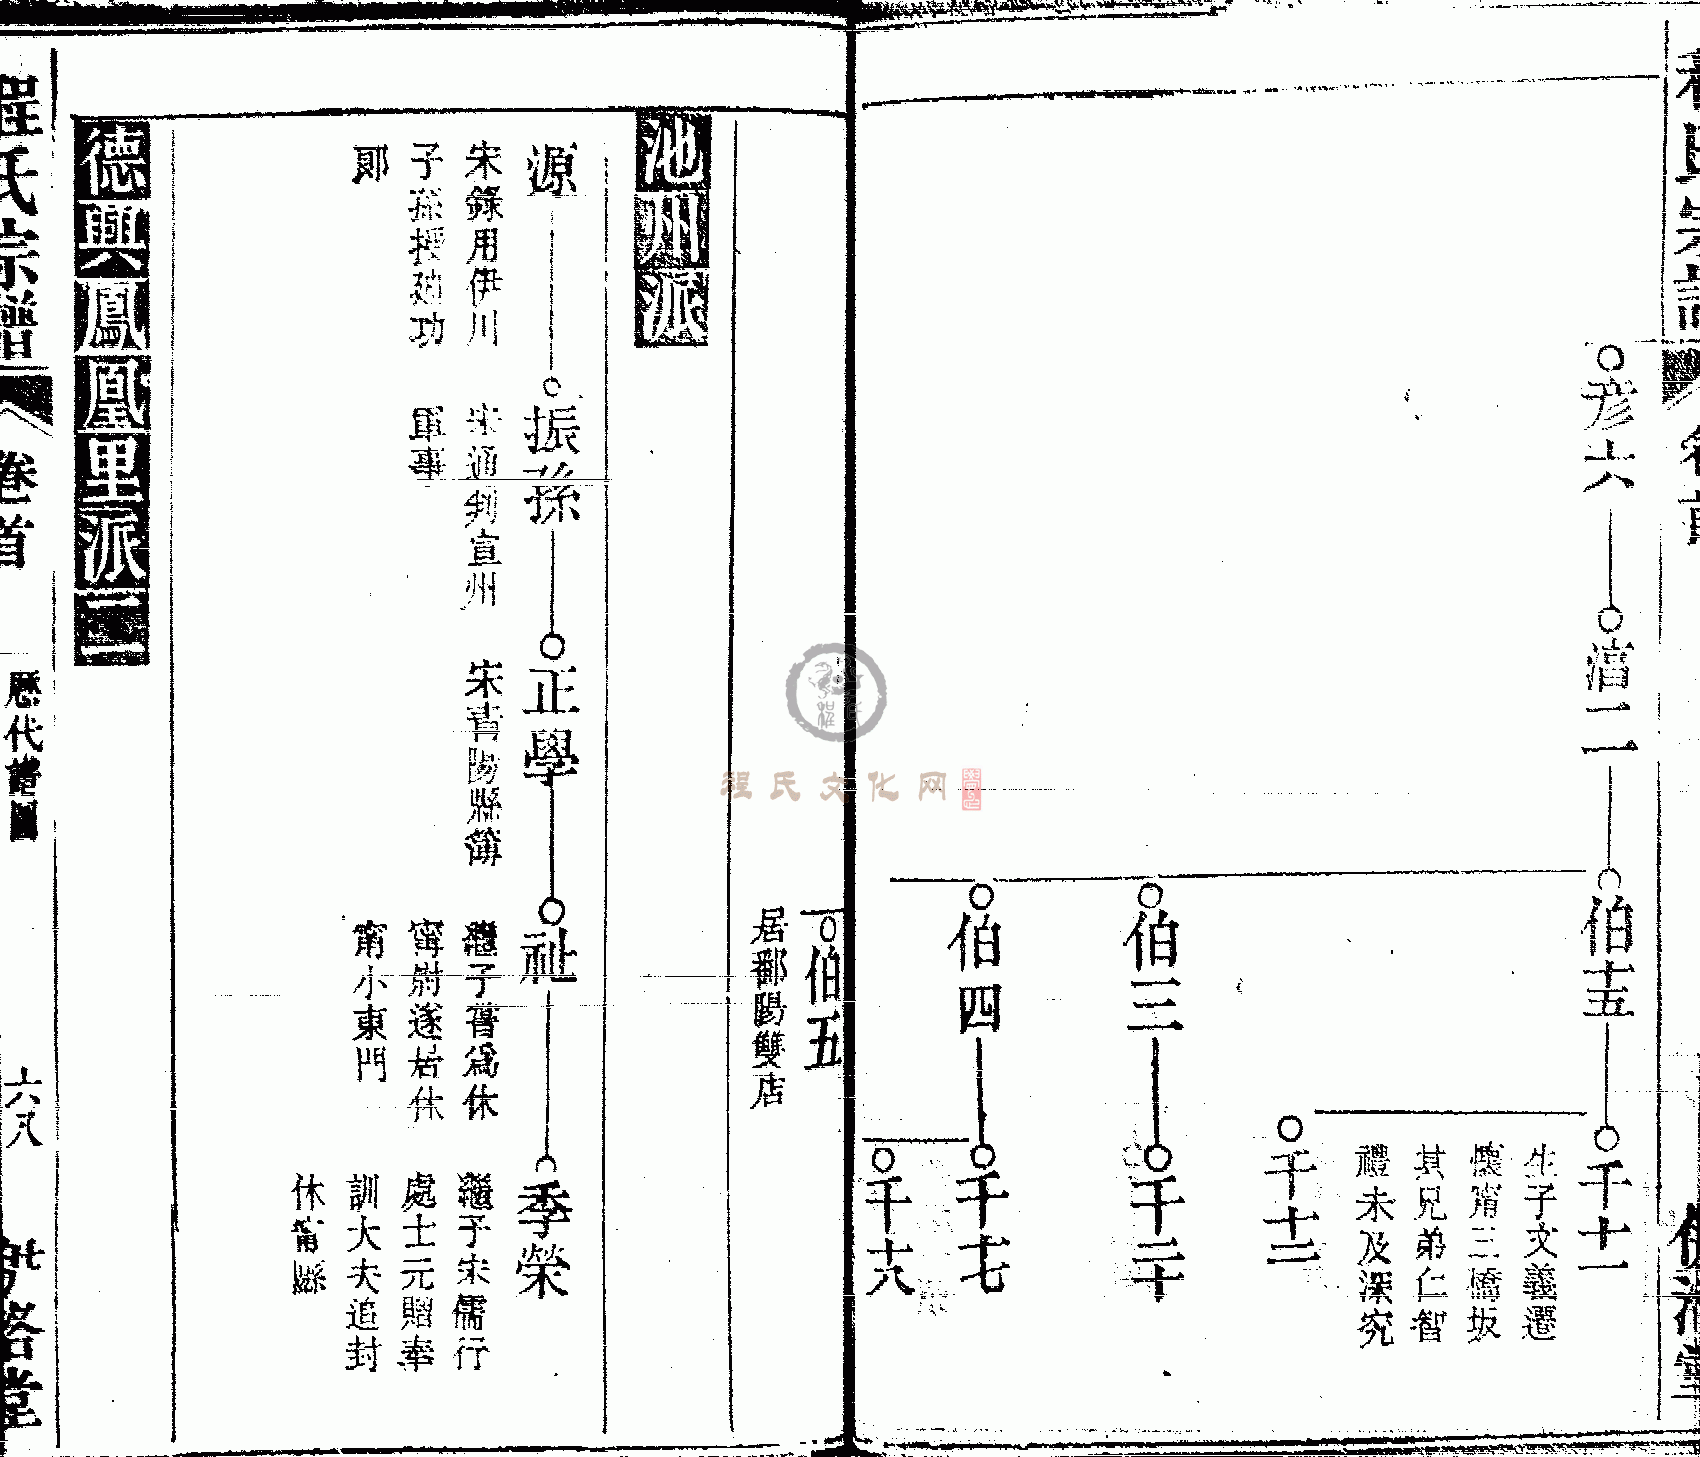 彥六
二
伯十五
千十一
生子文義遷
懷甯三橋坂
其兄弟仁智
禮未及深究
千十二
伯三
千二十
伯四
千十七
千十八
伯五
居鄱陽雙店
池州派
源
宋錄用伊川
子孫授廸功
郎
振孫
宋通判宣州
軍事
正學
宋青陽縣簿
祉
繼子晋爲休
甯尉遂居休
甯小東門
季榮
繼子宋儒行
處士元贈奉
訓大夫追封
休甯縣
德興鳳凰里派二
程氏宗譜
卷首
歷代譜圖
六八
伊洛堂
程氏文化网